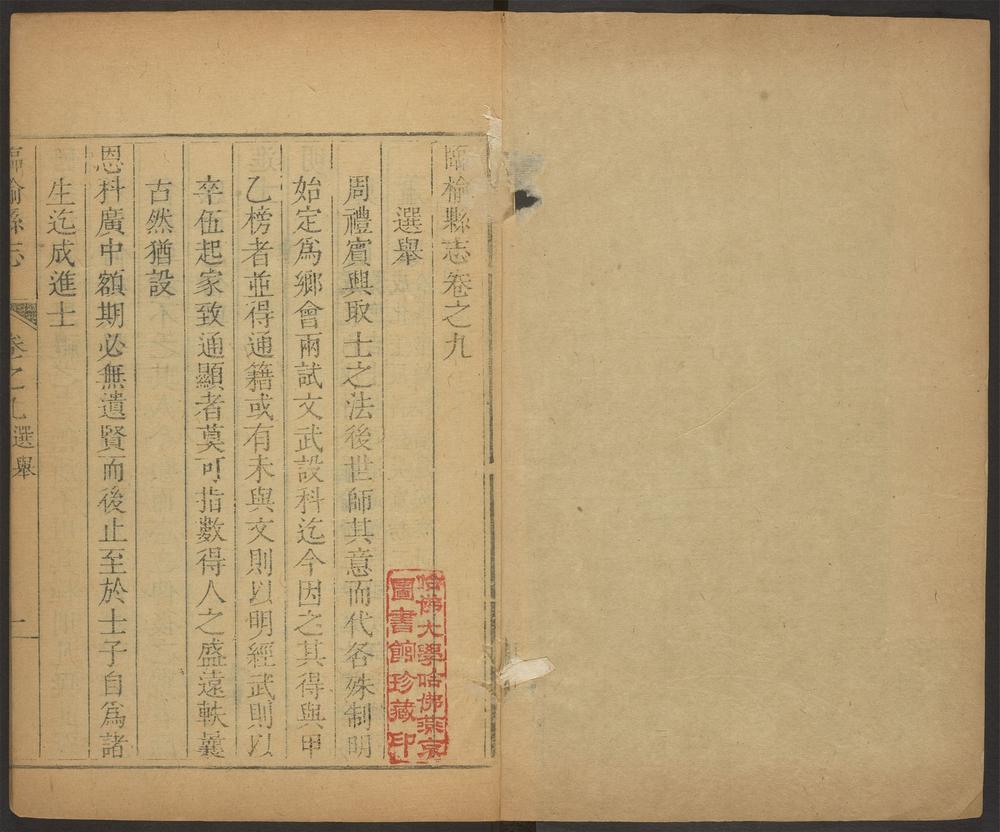 臨榆縣志卷之九
選舉
周禮賓興取士之法後世師其意而代各殊制明
始定爲鄉會兩試文武設科迄今因之其得與甲
乙榜者並得通籍或有未與文則以明經武則以
卒伍起家致通顯者莫可指數得人之盛遠軼曩
古然猶設
恩科廣中額期必無遺賢而後止至於士子自爲諸
生迄成進士
臨榆縣志
卷之九選舉
一
哈佛大學哈佛燕京
圖書館珍藏印